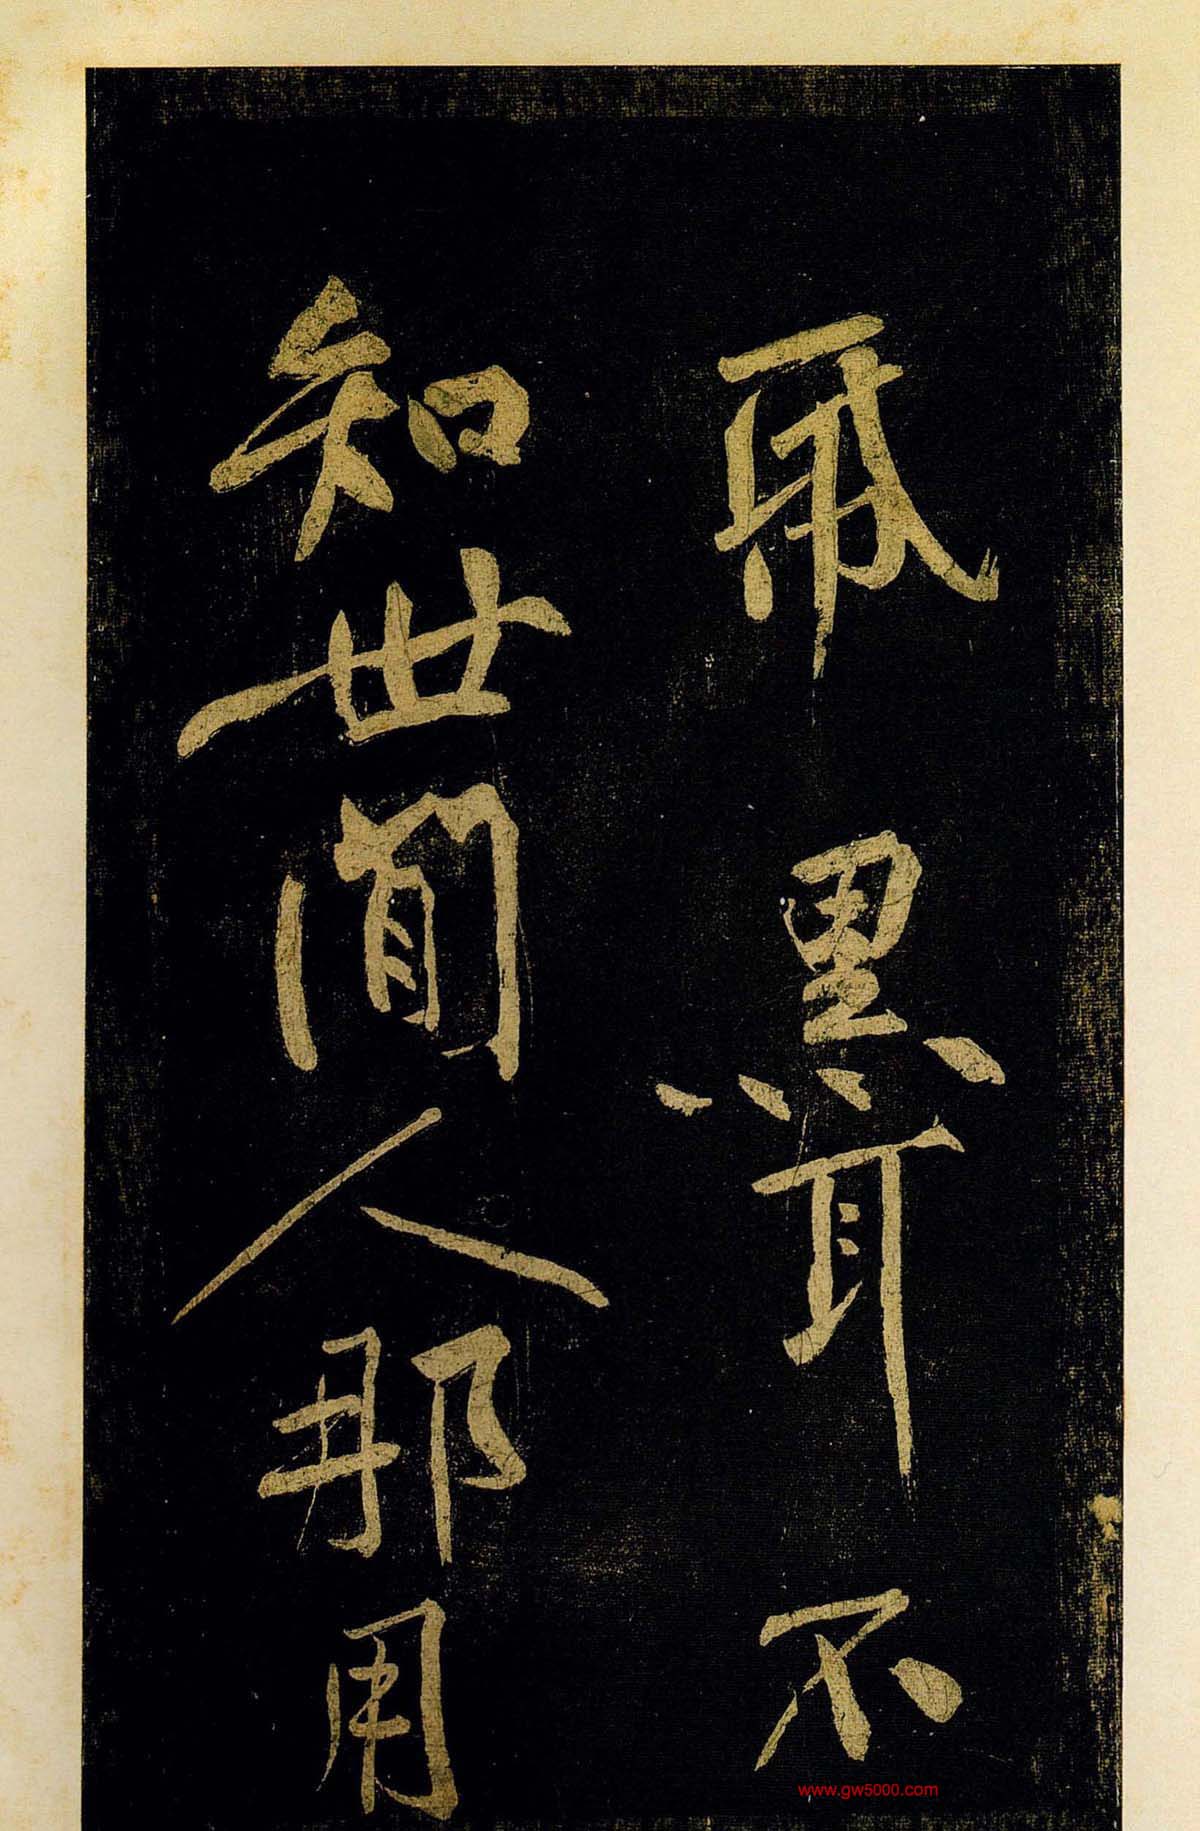 黑耳不
知世間人那用
www.gw5000.com